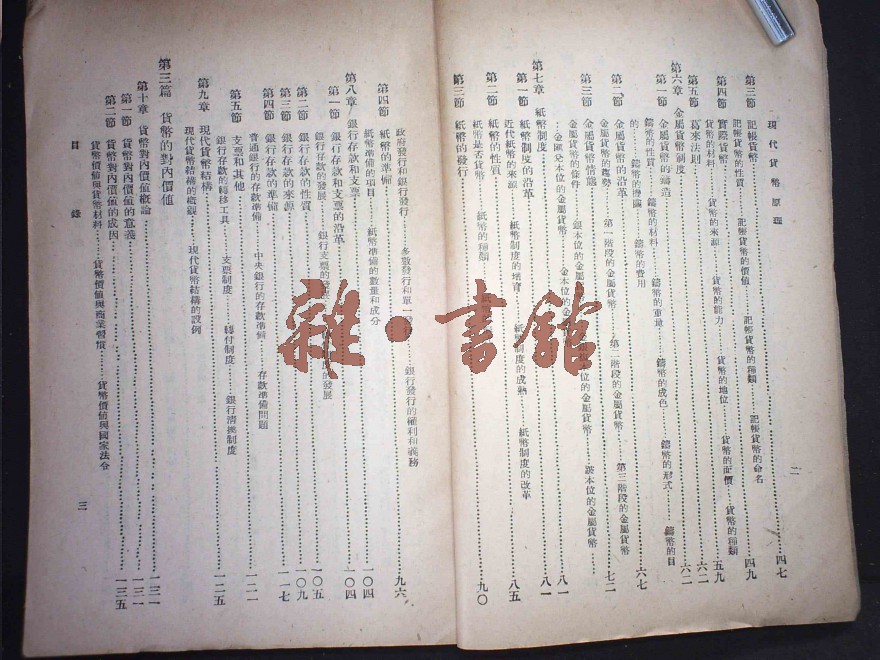 現代貨幣原理
二
第三節 記帳貨幣……四七
記帳貨幣的性質……記帳貨幣的價值……記帳貨幣的種類……記帳貨幣的命名
第四節 實際貨幣……四九
貨幣的材料……貨幣的來源……貨幣的能力……貨幣的地位……貨幣的面價……貨幣的種類
第五節 葛來法則……五九
第六章 金屬貨幣制度……六二
第一節 金屬貨幣的鑄造……六二
鑄幣的性質……鑄幣的材料……鑄幣的重量……鑄幣的成色……鑄幣的形式……鑄幣的目
的……鑄幣的費用
第二節 金屬貨幣的沿革……六七
金屬貨幣的趨勢……第一階段的金屬貨幣……第二階段的金屬貨幣……第三階段的金屬貨幣
第三節 金屬貨幣的情態……七二
金屬貨幣的條件……銀本位的金屬貨幣……本位的金屬貨幣
……金匯兌本位的金屬貨幣……金本位的金
第七章 紙幣制度……八一
第一節 紙幣制度的沿革……八一
近代紙幣的來源……紙幣制度的增育……紙幣制度的成熟……紙幣制度的改革
第二節 紙幣的性質……八五
紙幣是否貨幣……紙幣的種類
第三節 紙幣的發行……九〇
政府發行和銀行發行……多數發行和單一發行……銀行發行的權利和義務
第四節 紙幣的準備……九六
紙幣準備的項目……紙幣準備的數量和成分
第八章 銀行存款和支票……一〇四
第一節 銀行存款和支票的沿革……一〇四
銀行存款的發展……銀行支票的發展……的發展
第二節 銀行存款的性質……一〇五
第三節 銀行存款的來源……一〇九
第四節 銀行存款的準備……一一七
普通銀行的存款準備……中央銀行的存款準備……存款準備問題
第五節 支票和其他……一二一
銀行存款的轉移工具……支票制度……轉付制度……銀行清換制度
第九章 現代貨幣結構……一二五
現代貨幣結構的概觀……現代貨幣結構的設例
第三篇 貨幣的對內價值
第十章 貨幣對內價值概論……一三一
第一節 貨幣對內價值的意義……一三一
第二節 貨幣對內價值的成因……一三五
貨幣價值與貨幣材料……貨幣價值與商業習慣……貨幣價值與國家法令
目錄
三
雜·書館